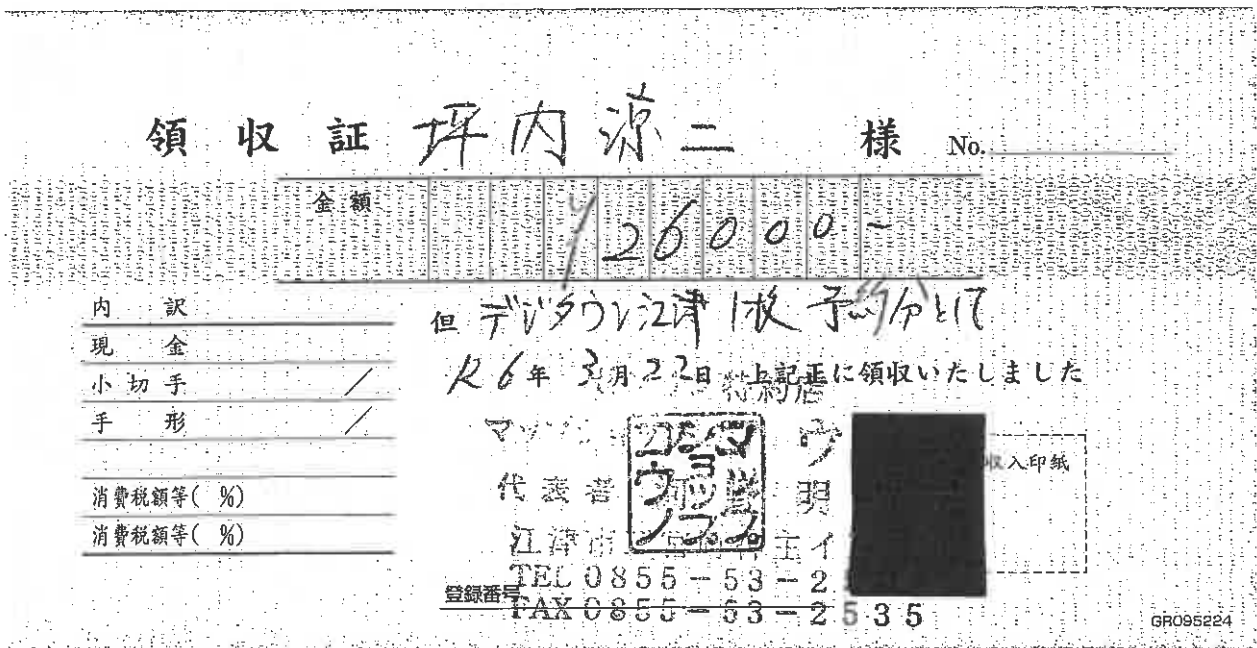 領収証 坪内涼二 様 No.
金額 ¥26000-
但 デジタウン江津 1枚 予約分として
R6年 3月22日 上記正に領収いたしました
内訳
現金
小切手 /
手形 /
消費税額等( %)
消費税額等( %)
特約店
マッ ウ
代表者 明
江津市 イ
TEL 0855-53-2
登録番号
FAX 0855-53-2535
収入印紙
GR095224